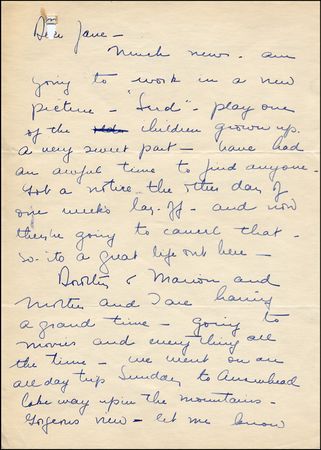 Dear Jane -
Much news - am
going to work in a new
picture - "Sud" - play one
of the children grown up.
a very sweet part - have had
an awful time to find anyone.
Got a notice the other day of
one week's lay-off - and now
they're going to cancel that -
so - its a great life out here -
Dorothy & Marion and
Mother and I are having
a grand time - going to
movies and everything all
the time - we went on an
all day trip Sunday to Arrowhead
Lake way up in the mountains -
Gorgeous view - let me know